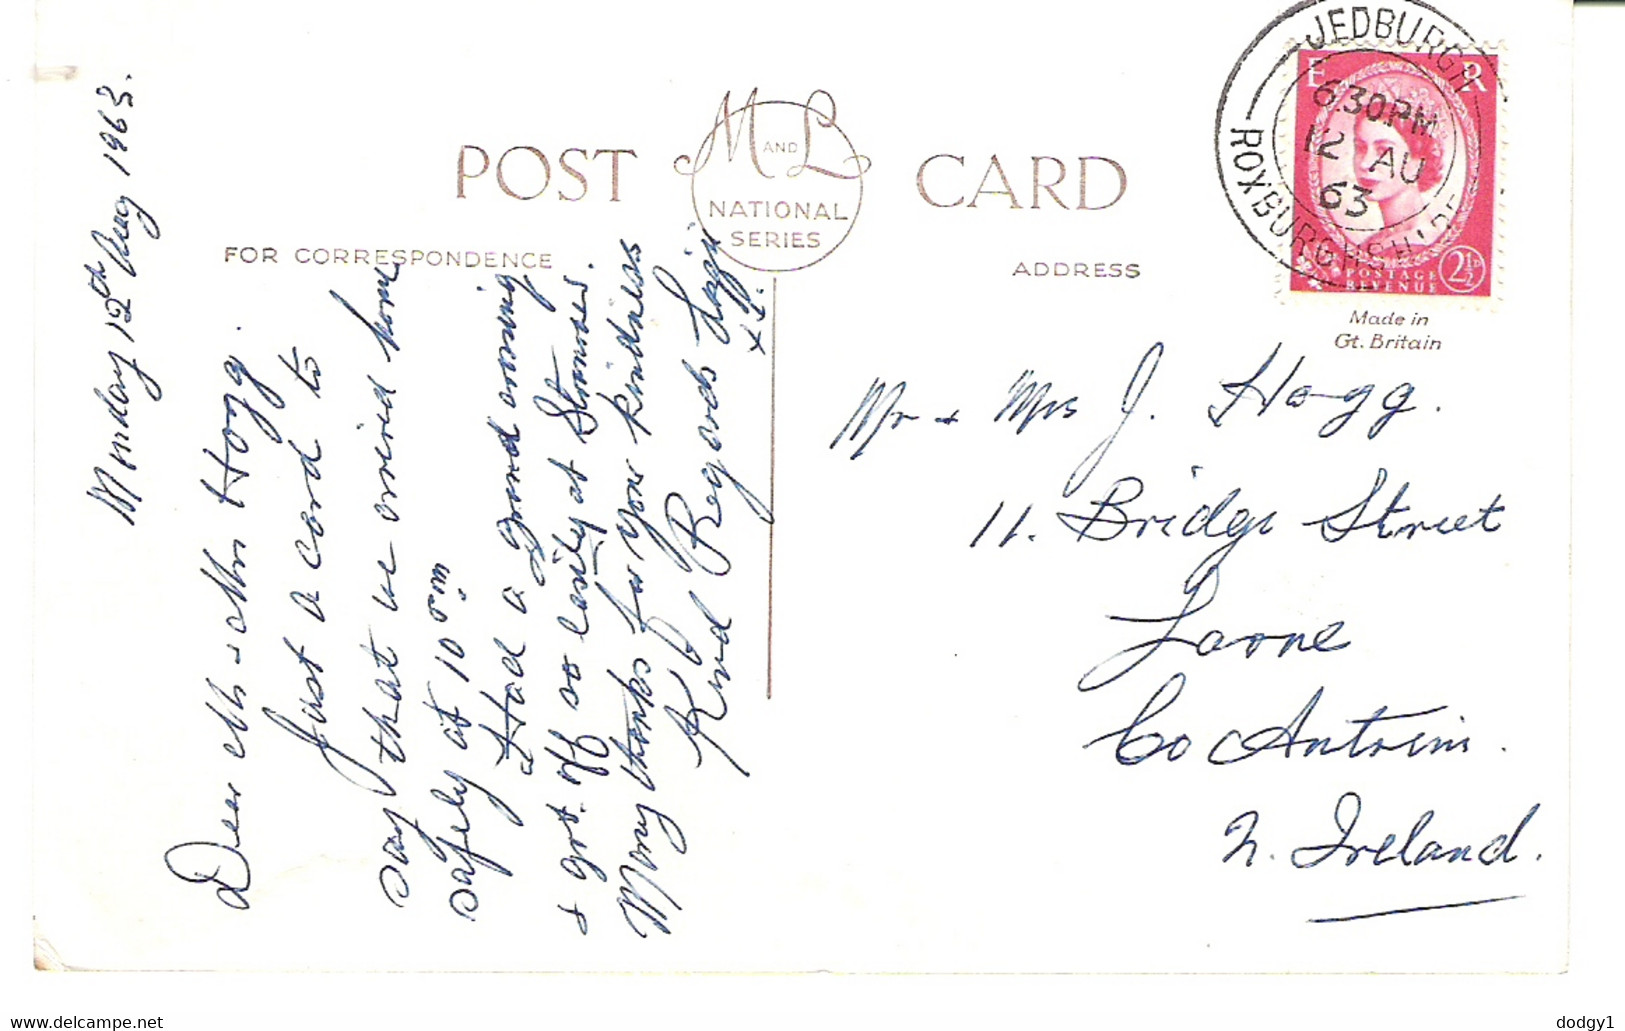 POST M AND L CARD
NATIONAL
SERIES
FOR CORRESPONDENCE
ADDRESS
JEDBURGH
6.30PM
12 AU
63
ROXBURGHSHIRE
E R
POSTAGE
REVENUE
2½D
Made in
Gt. Britain
Monday 12th Aug 1963.
Dear Mr & Mrs Hogg.
Just a card to
say that we arrived home
safely at 10 o.m
& Had a grand crossing
& got off so easily at Stranraer.
Many thanks for your kindness
Kind Regards
xx.
Mr & Mrs J. Hogg.
11. Bridge Street
Larne
Co Antrim.
N. Ireland.
www.delcampe.net
dodgy1